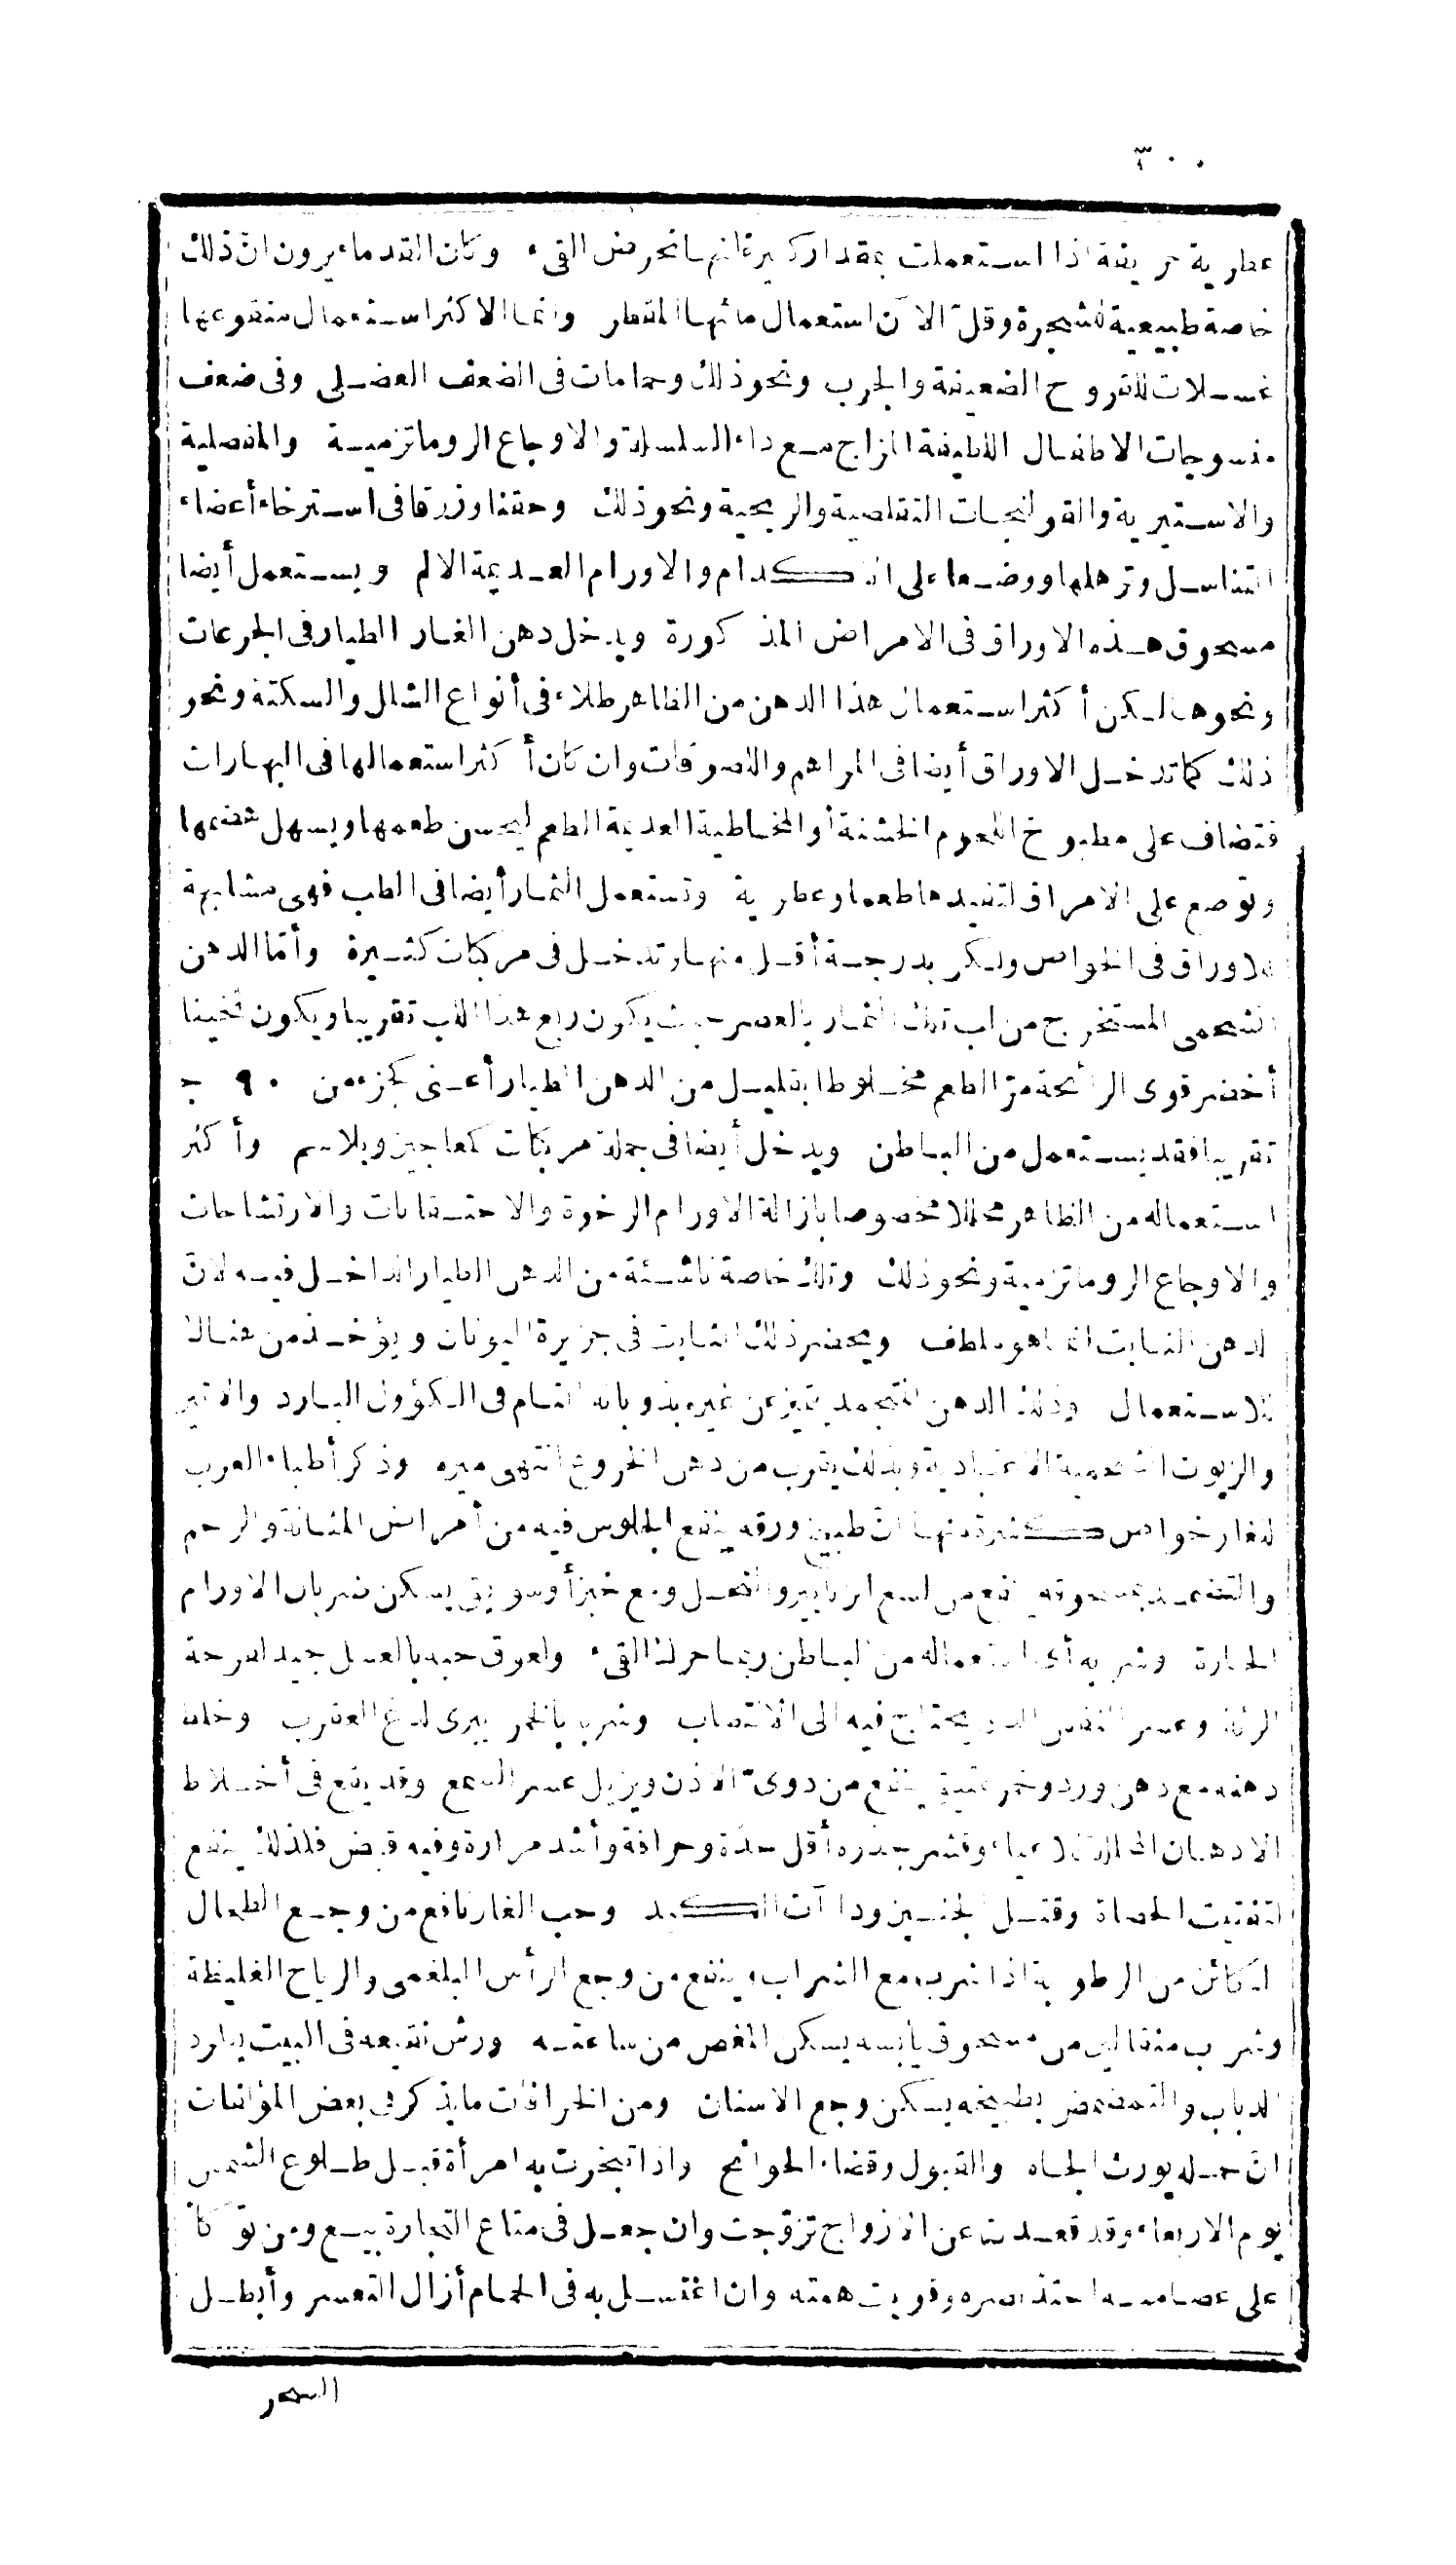 ٣٠٠
عطرية حريفة اذا استعملت بمقدار كبير فانها تحرض القيء وكان القدماء يرون ان ذلك
خاصة طبيعية للشجرة وقل الآن استعمال مائها المقطر وانما الاكثر استعمال منقوعها
غسلات للقروح الضعيفة والجرب ونحو ذلك وحمامات فى الضعف العضلى وفى ضعف
منسوجات الاطفال اللطيفة المزاج مع داء السلسلة والاوجاع الروماتزمية والمفصلية
والاستيرية والقولنجات التقلصية والريحية ونحو ذلك وحقنا وزرقا فى استرخاء أعضاء
التناسل وترهلها ووضعا على الكدام والاورام العديمة الالم ويستعمل أيضا
مسحوق هذه الاوراق فى الامراض المذكورة ويدخل دهن الغار الطيار فى الجرعات
ونحوها لكن أكثر استعمال هذا الدهن من الظاهر طلاء فى أنواع الشلل والسكتة ونحو
ذلك كما تدخل الاوراق أيضا فى المراهم واللصوقات وان كان أكثر استعمالها فى البهارات
فتضاف على مطبوخ اللحوم الخشنة أو المخاطية العديمة الطعم ليحسن طعمها ويسهل هضمها
وتوضع على الامراق لتفيدها طعما وعطرية وتستعمل الثمار أيضا فى الطب فهى مشابهة
للاوراق فى الخواص ولكن بدرجة أقل منها وتدخل فى مركبات كثيرة وأما الدهن
الشحمى المستخرج من لب تلك الثمار بالعصر حيث يكون ربع هذا اللب تقريبا ويكون ثخينا
أخضر قوى الرائحة مر الطعم مخلوطا بقليل من الدهن الطيار أعنى كجزء من ٩٠ ج
تقريبا فقد يستعمل من الباطن ويدخل أيضا فى جملة مركبات كمعاجين وبلاسم وأكثر
استعماله من الظاهر محللا مخصوصا بازالة الاورام الرخوة والاحتقانات والارتشاحات
والاوجاع الروماتزمية ونحو ذلك وتلك خاصة ناشئة من الدهن الطيار الداخل فيه لان
الدهن الثابت انما هو ملطف ويحضر ذلك الثابت فى جزيرة اليونان ويؤخذ من هنالك
للاستعمال وذلك الدهن المتجمد يتميز عن غيره بذوبانه التام فى الكؤول البارد والاتير
والزيوت الشحمية الاعتيادية وبذلك يقرب من دهن الخروع انتهى ميره وذكر أطباء العرب
للغار خواص كثيرة منها ان طبيخ ورقه ينفع الجلوس فيه من أمراض المثانة والرحم
والتضميد بمسحوقه ينفع من لسع الزنابير والنحل ومع خبز أو سويق يسكن ضربان الاورام
الحارة وشربه أى استعماله من الباطن ربما حرك القيء ولعوق حبه بالعسل جيد لقرحة
الرئة وعسر النفس الذى يحتاج فيه الى الانتصاب وشربه بالخمر يبرى لدغ العقرب وخلط
دهنه مع دهن ورد وخمر عتيق ينفع من دوى الاذن ويزيل عسر السمع وقد يقع فى أخلاط
الادهان المحللة للاعياء وقشر جذره أقل حدة وحرافة وأشد مرارة وفيه قبض فلذلك ينفع
لتفتيت الحصاة وقتل الجنين وداآت الكبد وحب الغار نافع من وجع الطحال
الكائن من الرطوبة اذا شرب مع الشراب وينفع من وجع الرأس البلغمى والرياح الغليظة
وشرب مثقالين من مسحوق يابسه يسكن المغص من ساعته ورش نقيعه فى البيت يطرد
الذباب والتمضمض بطبيخه يسكن وجع الاسنان ومن الخرافات ما يذكر فى بعض المؤلفات
ان حمله يورث الجاه والقبول وقضاء الحوائج واذا تبخرت به امرأة قبل طلوع الشمس
يوم الاربعاء وقد قعدت عن الازواج تزوجت وان جعل فى متاع التجارة بيع ومن توكأ
على عصا منه احتد بصره وقويت همته وان اغتسل به فى الحمام أزال التعسر وأبطل
السحر